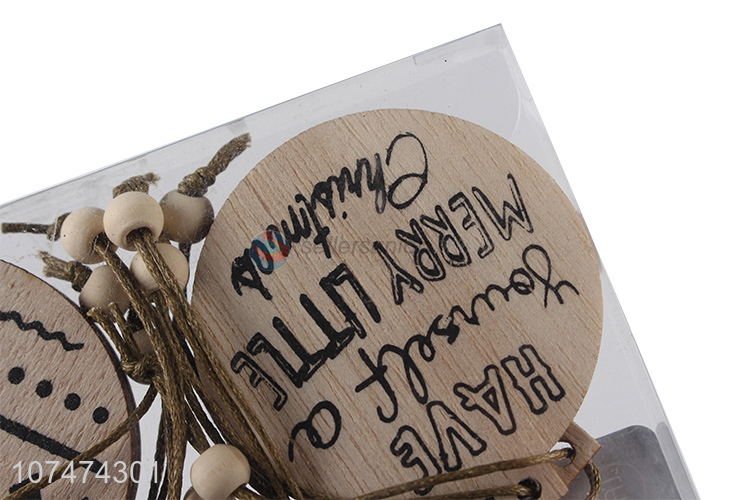 HAVE
Yourself a
MERRY LITTLE
Christmas
sellersunion
107474301